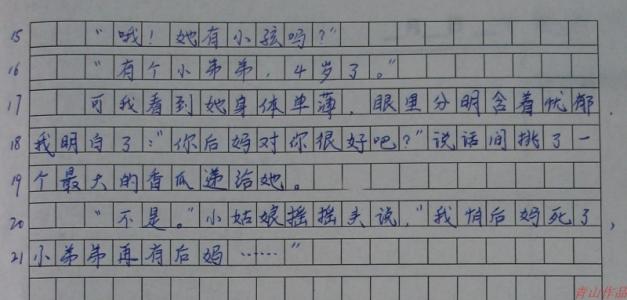 15 "哦！她有小孩吗？"
16 "有个小弟弟，4岁了。"
17 可我看到她身体单薄，眼里分明含着忧郁.
18 我明白了："你后妈对你很好吧？"说话间挑了一
19 个最大的香瓜递给她。
20 "不是。"小姑娘摇摇头说，"我怕后妈死了，
21 小弟弟再有后妈……"
青山作品